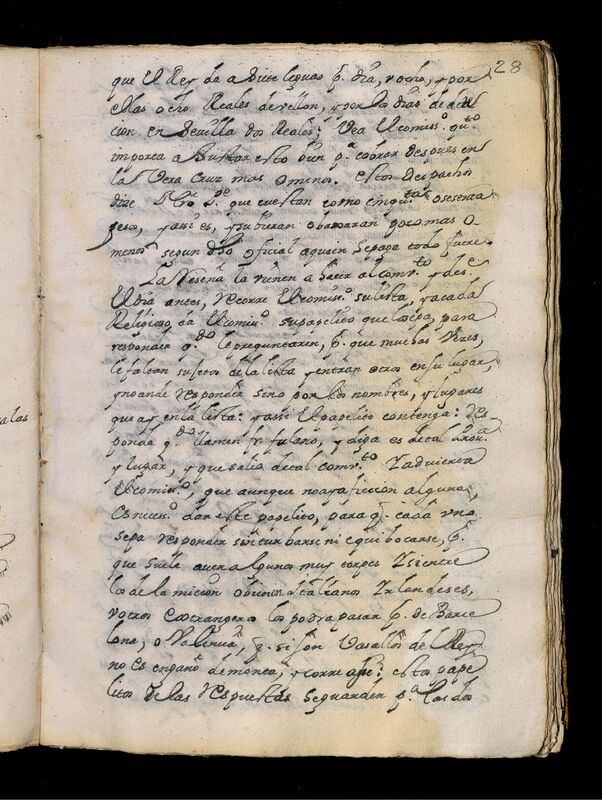 28
que el Rey da a siete leguas p. dia, y ocho, y por
ellas ocho Reales de vellon, y por los dias de deten
cion en Sevilla dos Reales; Vea el comiss.º q.to
importa a Justar esto bien p.a cobrar despues en
la Vera Cruz mas o menos. estos despachos
dize que cuestan como cinq.ta o sesenta
pesos, y assi es, y subieran o baxaran poco mas o
menos segun el oficial a quien se paga todo
La Reseña la vienen a hacer al comv.to y des.
el dia antes, recorre el comiss.º su lista, y a cada
Religioso da el comiss.º su papelico que sepa, para
responder q.do le preguntaren, p. que muchas vezes,
le faltan sujetos de la lista y entran otros en su lugar,
y no an de responder sino por los nombres, y lugares
que ay en la lista: y assi el papelico contenga: Res
ponda q.do llamen fr. fulano, y diga es de tal Prov.a
y lugar, y que salio de tal comv.to Y advierta
el comiss.º, que aunque no aya ficcion alguna,
es neces.º dar este papelico, para q. cada uno
sepa responder sin turbarse ni equibocarse, p.
que suele aver algunos muy torpes Y si entre
los de la micion obiere Italianos Irlandeses,
y otros extrangeros los podra pasar p. de Barce
lona, o Valencia, q. si son Vasallos del Rey
no es engaño de monta, y corre assi: estos pape
litos de las respuestas se guarden p.a las dos
alas